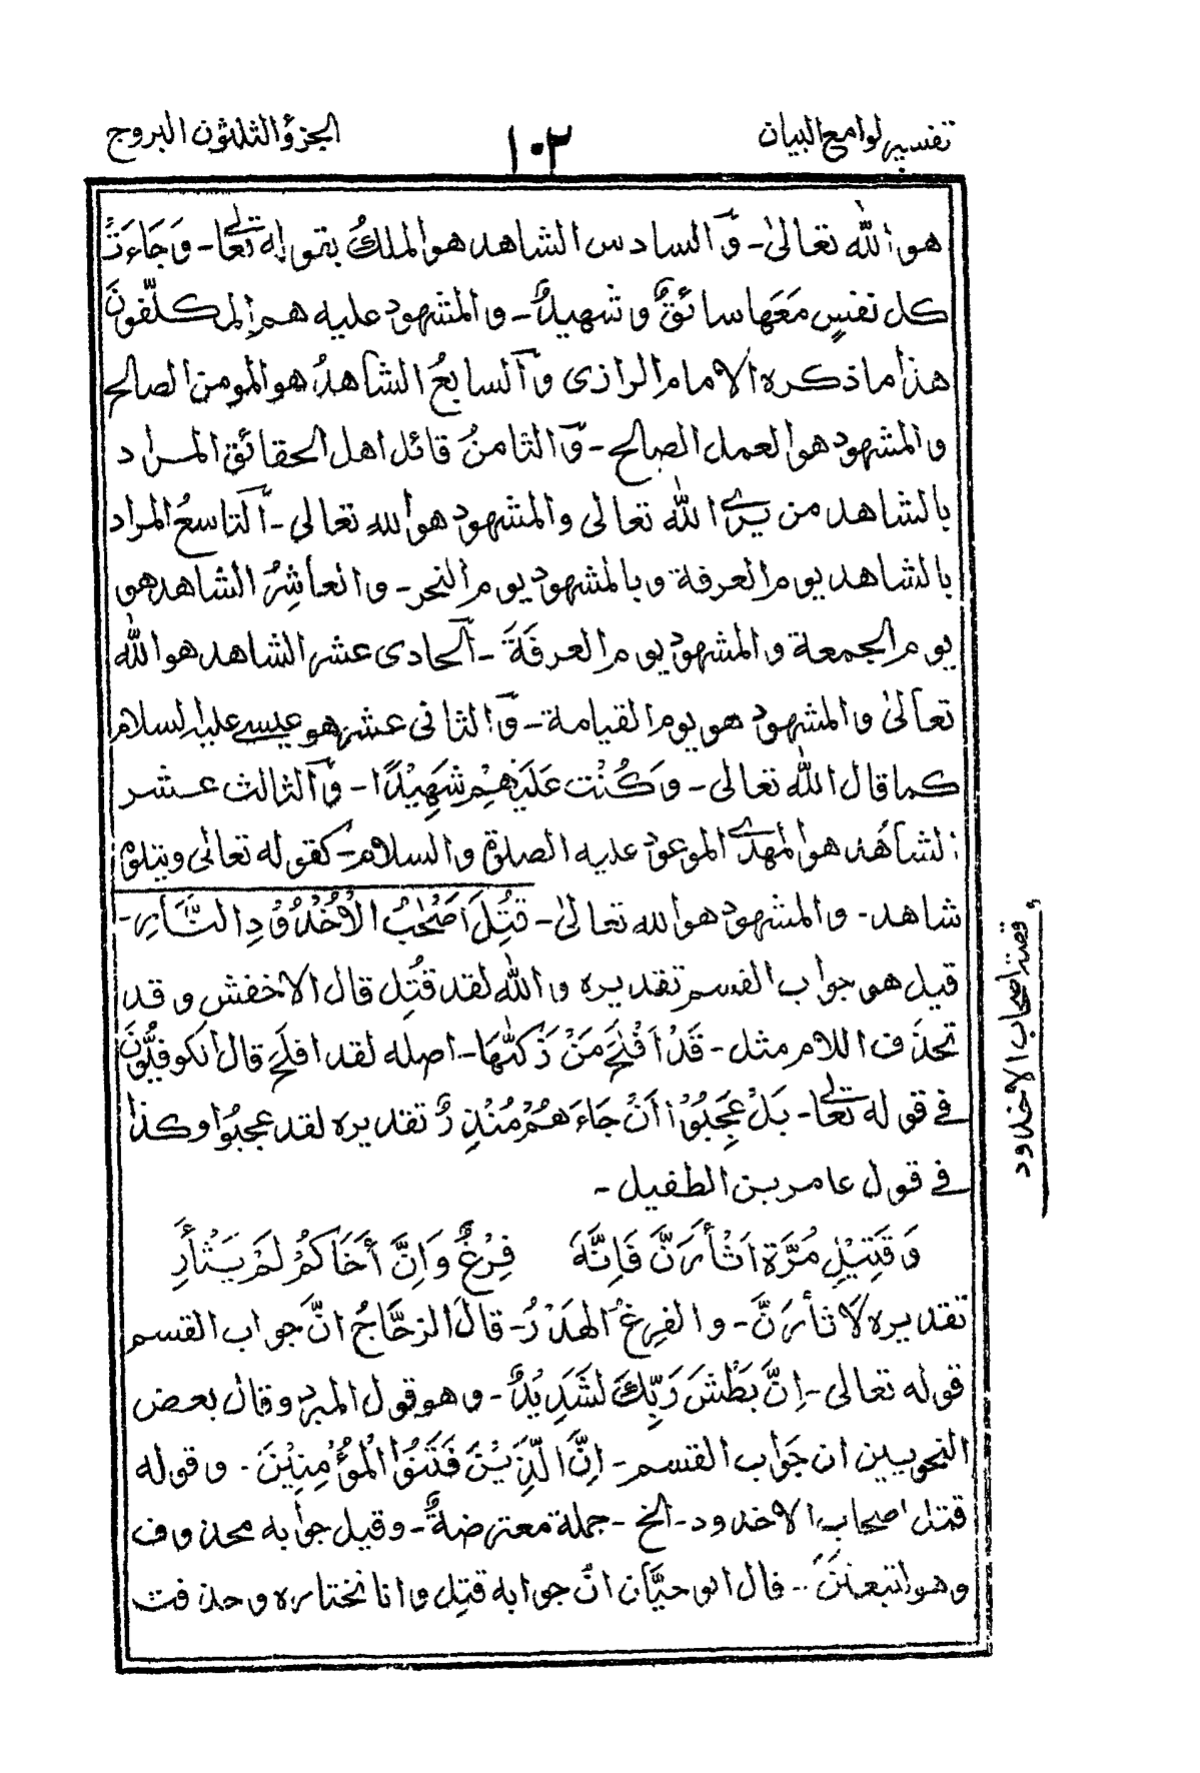 تفسير لوامع البيان
١٠٢
الجزؤ الثلثون البروج
هو الله تعالىٰ - وٓالسادس الشاهد هو الملكُ بقوله تعالى - وَجَاءَتْ
كل نفسٍ مَعَها سائقٌ وشهيدٌ - والمشهود عليه هم المكلّفونَ
هذا ما ذكره الامام الرازى وٓالسابعُ الشاهدُ هو المومن الصالح
والمشهود هو العمل الصالح - وٓالثامنُ قائل اهل الحقائق المراد
بالشاهد من يرے الله تعالى والمشهود هو الله تعالى - آلتاسعُ المراد
بالشاهد يوم العرفة وبالمشهود يوم النحر - والعاشِرُ الشاهد هو
يوم الجمعة والمشهود يوم العرفَةَ - آلحادى عشر الشاهد هو الله
تعالىٰ والمشهود هو يوم القيامة - وٓالثانى عشر هو عيسے عليه السلام
كما قال الله تعالى - وَكُنْت عَلَيْهِمْ شَهِيْدًا - وٓالثالث عشر
الشاهُد هو المهدے الموعود عليه الصلوة والسلام - كقوله تعالى ويتلوهُ
شاهد - والمشهود هو الله تعالىٰ - قُتِلَ اَصْحٰبُ الْاُخْدُوْدِ النَّارِ -
قيل هو جواب القسم تقديره والله لقد قُتِل قال الاخفش وقد
تحذَف اللام مثل - قَدْ اَفْلَحَ مَنْ زَكّٰهَا - اصله لقد افلَحَ قال الكوفيُّونَ
فے قوله تعالى - بَلْ عَجِبُوْا اَنْ جَاءَهُمْ مُنْذِرٌ تقديره لقد عجبُوا وكذا
فے قول عامر بن الطفيل -
وَقَتِيْلِ مُرَّةَ اَثْأَرَنَّ فَاِنَّهٗ    فِرْغٌ وَاِنَّ أَخَاكُمْ لَمْ يَثْأَرِ
تقديره لَاَثأرَنَّ - والفِرغُ الهَدْرُ - قالَ الزجَّاجُ انَّ جواب القسم
قوله تعالى - اِنَّ بَطْشَ رَبِّكَ لَشَدِيْدٌ - وهو قول المبرد وقال بعض
النحويين ان جَواب القسم - اِنَّ الَّذِيْنَ فَتَنُوا الْمُؤْمِنِيْنَ - وقوله
قتل اصحاب الاخدود - الخ - جملة معترضةٌ - وقيل جوابه محذوف
وهو لتبعثنَّ - قال ابو حيَّان انّ جوابه قتِل وانا نختاره وحذفت
قصة اصحاب الاخدود